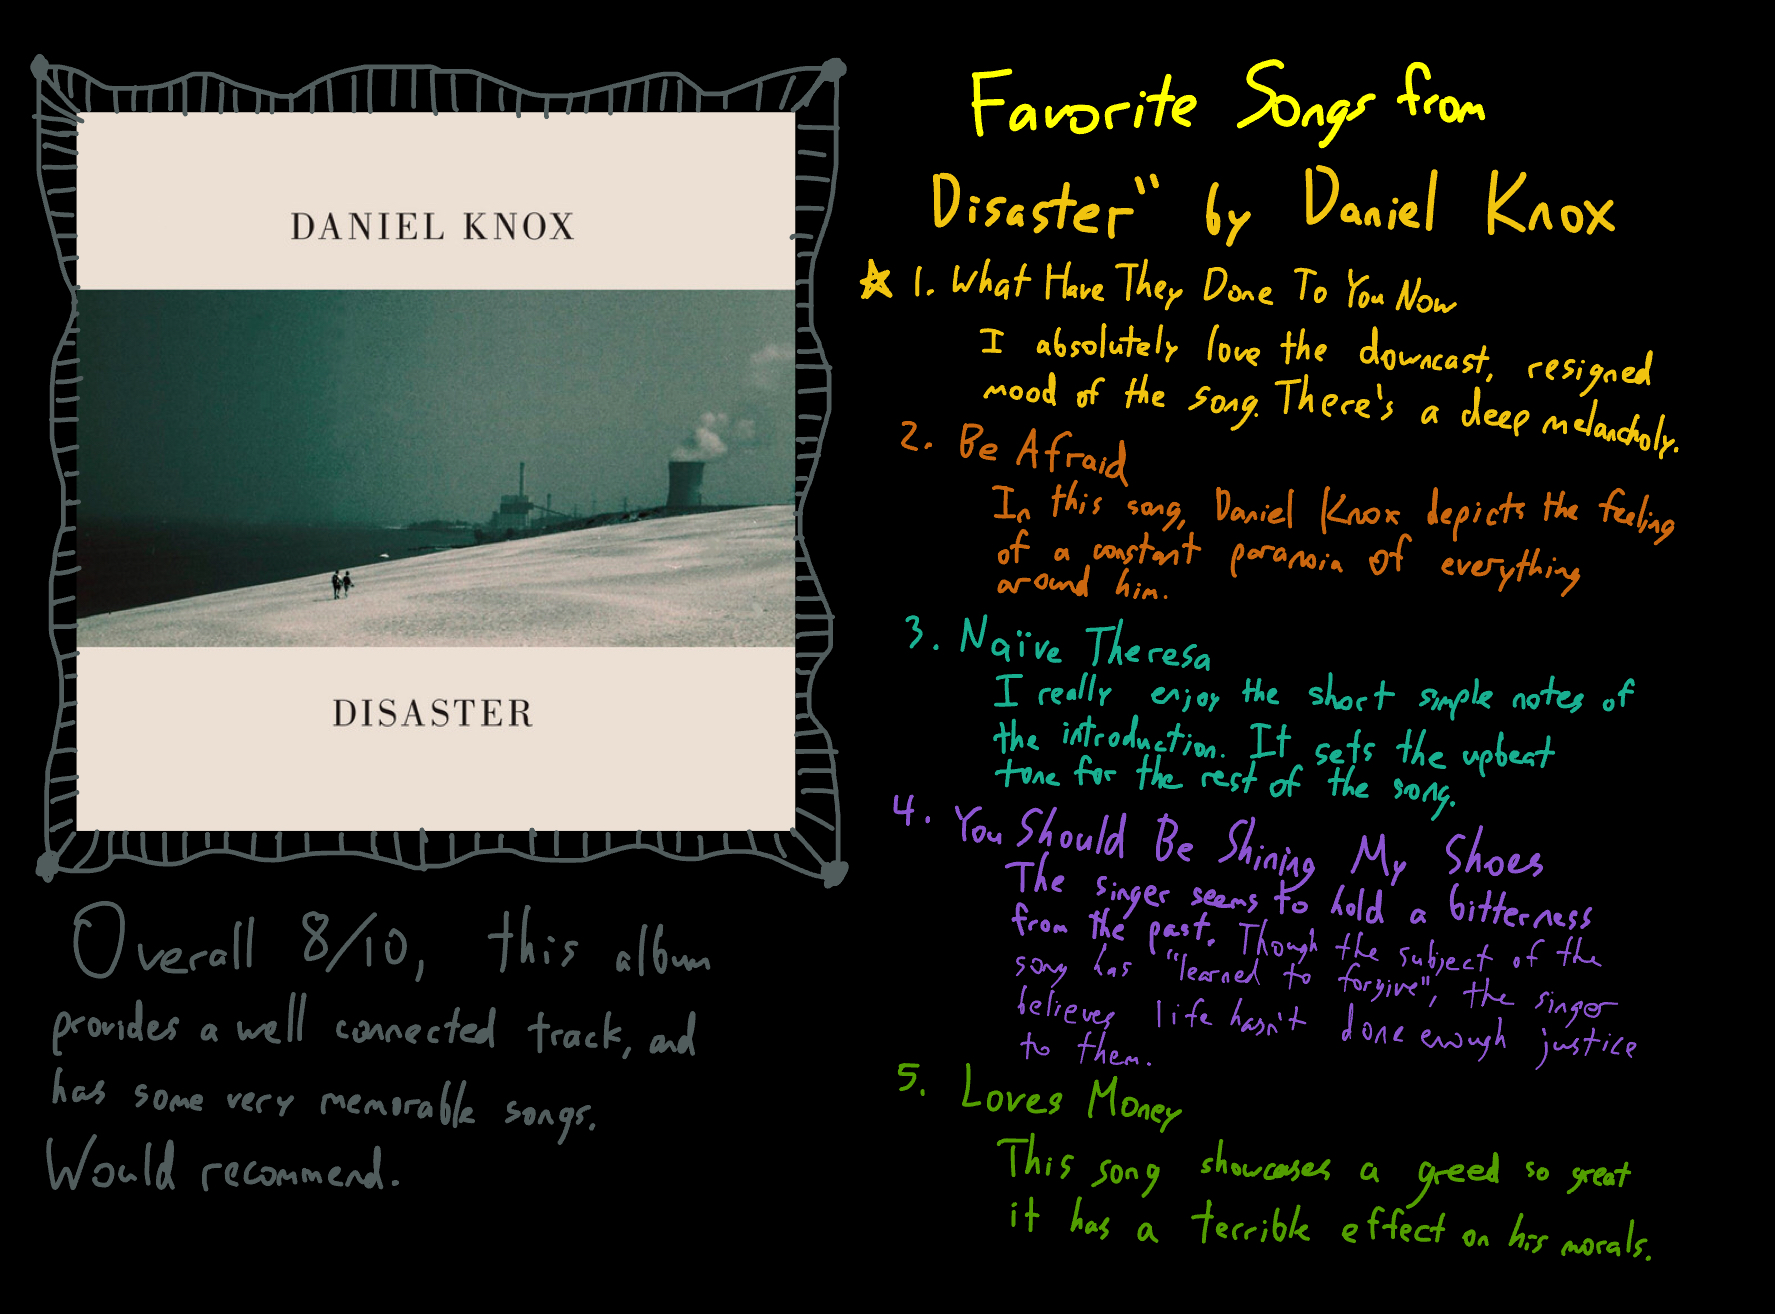 DANIEL KNOX
DISASTER
Overall 8/10, this album
provides a well connected track, and
has some very memorable songs.
Would recommend.
Favorite Songs from
Disaster" by Daniel Knox
1. What Have They Done To You Now
I absolutely love the downcast, resigned
mood of the song. There's a deep melancholy.
2. Be Afraid
In this song, Daniel Knox depicts the feeling
of a constant paranoia of everything
around him.
3. Naïve Theresa
I really enjoy the short simple notes of
the introduction. It sets the upbeat
tone for the rest of the song.
4. You Should Be Shining My Shoes
The singer seems to hold a bitterness
from the past. Though the subject of the
song has "learned to forgive", the singer
believes life hasn't done enough justice
to them.
5. Loves Money
This song showcases a greed so great
it has a terrible effect on his morals.